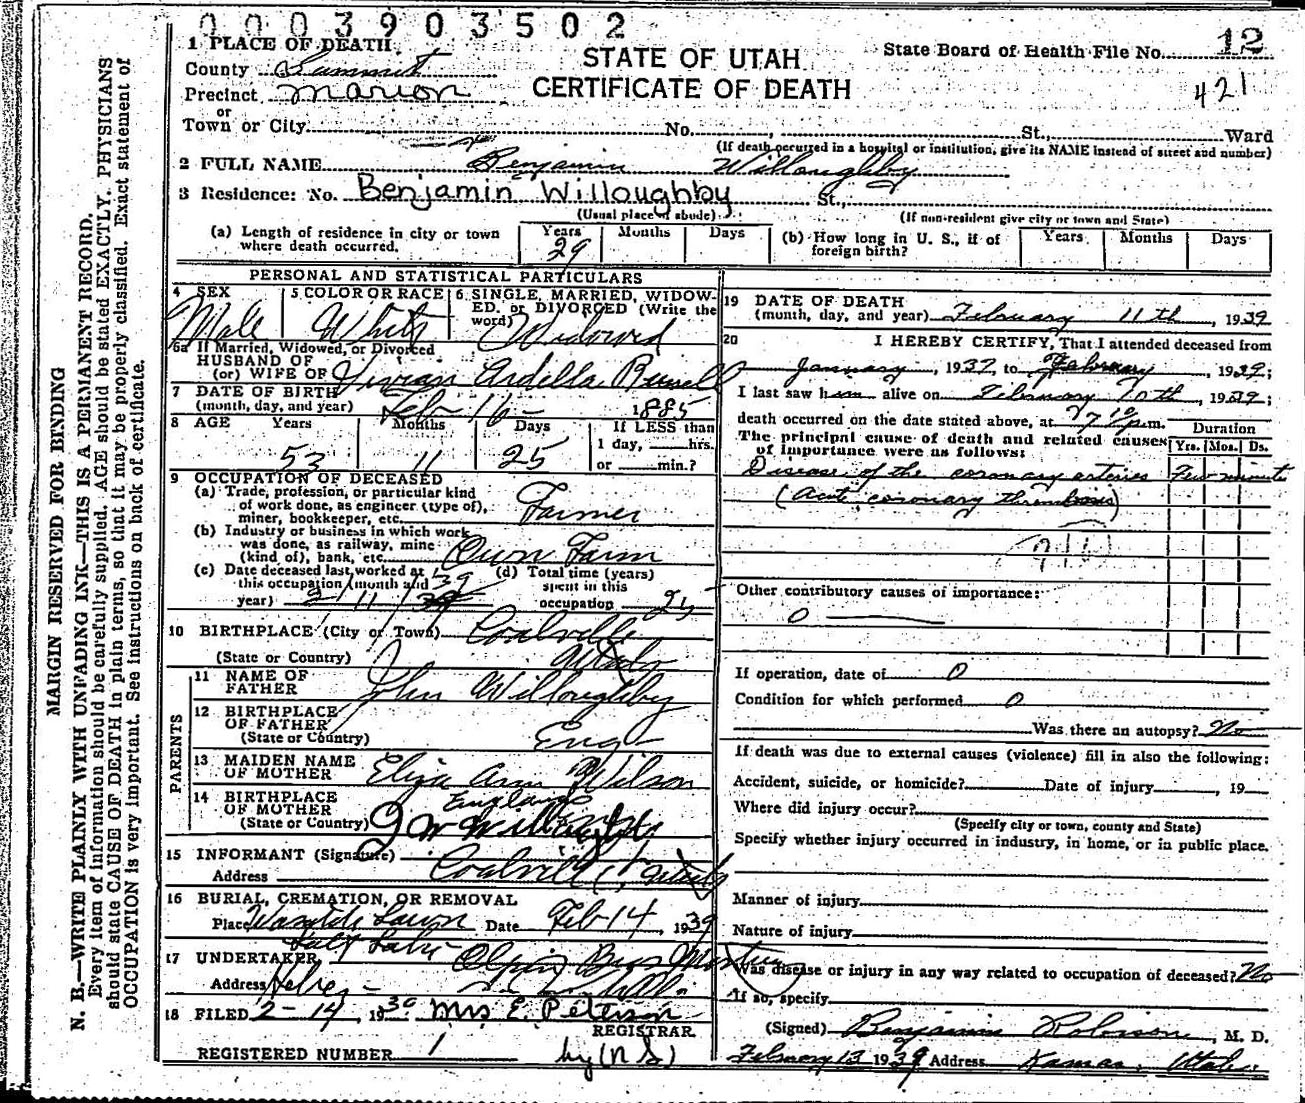 0003903502
STATE OF UTAH
CERTIFICATE OF DEATH
State Board of Health File No. 12
421
MARGIN RESERVED FOR BINDING
N. B.—WRITE PLAINLY WITH UNFADING INK—THIS IS A PERMANENT RECORD.
Every item of information should be carefully supplied. AGE should be stated EXACTLY. PHYSICIANS
should state CAUSE OF DEATH in plain terms, so that it may be properly classified. Exact statement of
OCCUPATION is very important. See instructions on back of certificate.
1 PLACE OF DEATH
County Summit
Precinct Marion
or
Town or City No. , St., Ward
(If death occurred in a hospital or institution, give its NAME instead of street and number)
2 FULL NAME Benjamin Willoughby
3 Residence: No. Benjamin Willoughby St.,
(Usual place of abode) (If non-resident give city or town and State)
(a) Length of residence in city or town where death occurred. Years 29 Months Days
(b) How long in U. S., if of foreign birth? Years Months Days
PERSONAL AND STATISTICAL PARTICULARS
4 SEX Male
5 COLOR OR RACE White
6 SINGLE, MARRIED, WIDOWED, or DIVORCED (Write the word) Widowed
6a If Married, Widowed, or Divorced
HUSBAND OF
(or) WIFE OF Vivian Ardella Russell
7 DATE OF BIRTH
(month, day, and year) Feb 16 - 1885
8 AGE Years 53 Months 11 Days 25 If LESS than
1 day, hrs.
or min.?
9 OCCUPATION OF DECEASED
(a) Trade, profession, or particular kind
of work done, as engineer (type of),
miner, bookkeeper, etc. Farmer
(b) Industry or business in which work
was done, as railway, mine
(kind of), bank, etc. Own Farm
(c) Date deceased last worked at
this occupation (month and
year) 2/11/39
(d) Total time (years)
spent in this
occupation 25
10 BIRTHPLACE (City or Town) Coalville
(State or Country) Utah
PARENTS
11 NAME OF
FATHER John Willoughby
12 BIRTHPLACE
OF FATHER
(State or Country) Eng
13 MAIDEN NAME
OF MOTHER Eliza Ann Wilson
14 BIRTHPLACE
OF MOTHER England
(State or Country)
15 INFORMANT (Signature) J W Willoughby
Address Coalville, Utah
16 BURIAL, CREMATION, OR REMOVAL
Place Wasatch Lawn Date Feb 14, 1939
Salt Lake
17 UNDERTAKER Olpin Bros Mortuary
Address Heber
18 FILED 2-14, 1939 Mrs E. Peterson
REGISTRAR
REGISTERED NUMBER 1 by (N S)
19 DATE OF DEATH
(month, day, and year) February 11th, 1939
20 I HEREBY CERTIFY, That I attended deceased from
January, 1937, to February, 1939;
I last saw him alive on February 10th, 1939;
death occurred on the date stated above, at 7 10 p.m.
Duration
The principal cause of death and related causes
of importance were as follows: Yrs. Mos. Ds.
Disease of the coronary arteries Few minutes
(Acute coronary thrombosis)
Other contributory causes of importance:
0
If operation, date of 0
Condition for which performed 0
Was there an autopsy? No
If death was due to external causes (violence) fill in also the following:
Accident, suicide, or homicide? Date of injury , 19
Where did injury occur?
(Specify city or town, county and State)
Specify whether injury occurred in industry, in home, or in public place.
Manner of injury
Nature of injury
Was disease or injury in any way related to occupation of deceased? No
If so, specify
(Signed) Benjamin Robison, M. D.
February 13 1939 Address Kamas, Utah